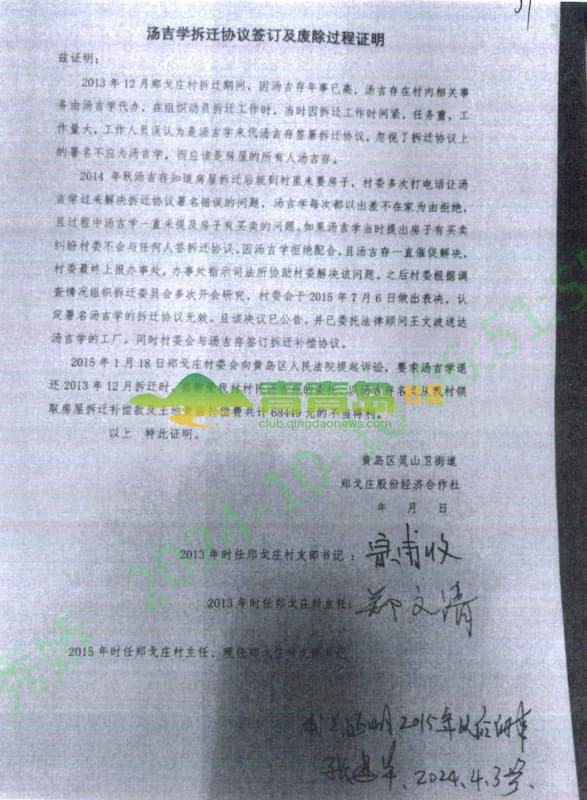 汤吉学拆迁协议签订及废除过程证明
兹证明：
2013年12月郑戈庄村拆迁期间，因汤吉存年事已高，汤吉存在村内相关事
务由汤吉学代办，在组织动员拆迁工作时，当时因拆迁工作时间紧，任务重，工
作量大，工作人员误认为是汤吉学来代汤吉存签署拆迁协议，忽视了拆迁协议上
的署名不应为汤吉学，而应该是房屋的所有人汤吉存。
2014年秋汤吉存知道房屋拆迁后就到村里来要房子，村委多次打电话让汤
吉学过来解决拆迁协议署名错误的问题，汤吉学每次都以出差不在家为由拒绝，
且过程中汤吉学一直未提及房子有买卖的问题。如果汤吉学当时提出房子有买卖
纠纷村委不会与任何人签拆迁协议。因汤吉学拒绝配合，且汤吉存一直催促解决，
村委最终上报办事处，办事处指示司法所协助村委解决该问题。之后村委根据调
查情况组织拆迁委员会多次开会研究，村委会于2015年7月6日做出表决，认
定署名汤吉学的拆迁协议无效，且该决议已公告，并已委托法律顾问王文波送达
汤吉学的工厂。同时村委会与汤吉存签订拆迁补偿协议。
2015年1月18日郑戈庄村委会向黄岛区人民法院提起诉讼，要求汤吉学退
还2013年12月拆迁时，以汤吉存名义从我村领
取房屋拆迁补偿款及土地补偿费共计68449元的不当得利。
以上 特此证明。
黄岛区灵山卫街道
郑戈庄股份经济合作社
年 月 日
2013年时任郑戈庄村支部书记：
2013年时任郑戈庄村主任：郑文清
2015年时任郑戈庄村主任、现任郑戈庄村支部书记
2015年以后的事
张建 2024.4.3号.
club.qingdaonews.com
社区
2024-10-10 16:51:5